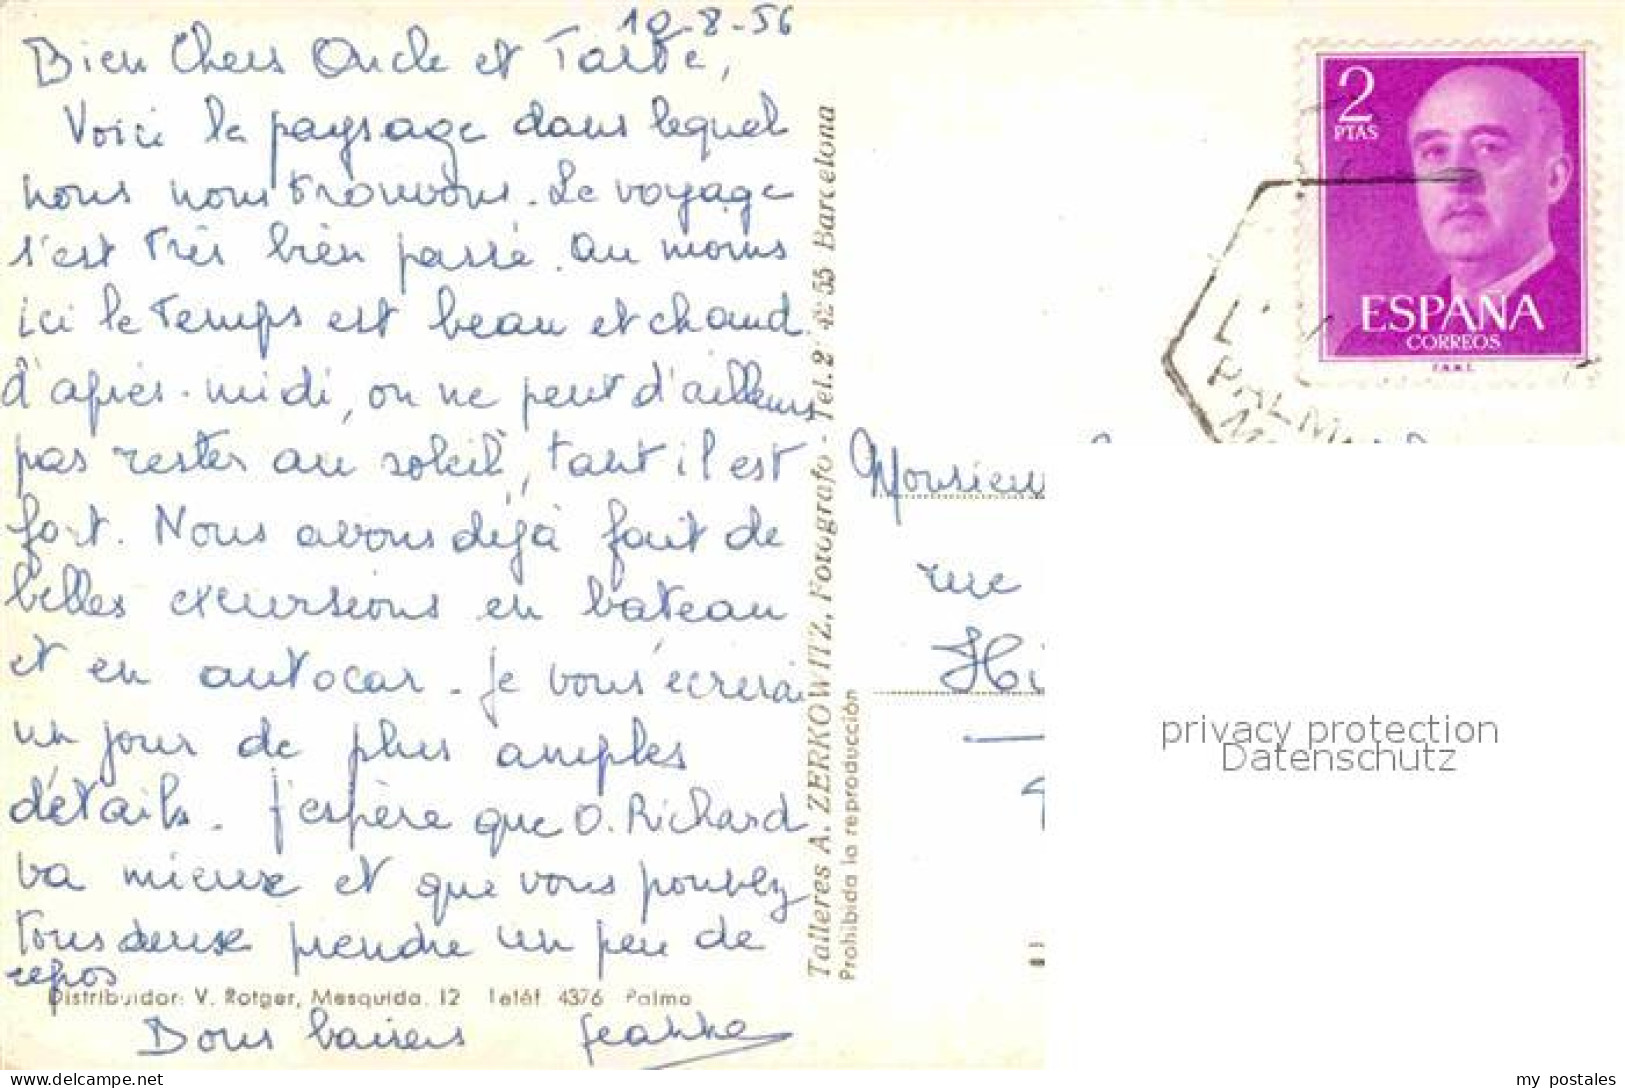 10-8-56
Bien Chers Oncle et Tante,
Voici le paysage dans lequel
nous nous trouvons. Le voyage
s'est très bien passé. Au moins
ici le temps est beau et chaud.
L'après-midi, on ne peut d'ailleurs
pas rester au soleil, tant il est
fort. Nous avons déjà fait de
belles excursions en bateau
et en autocar. Je vous écrirai
un jour de plus amples
détails. J'espère que O. Richard
va mieux et que vous pouvez
tous deux prendre un peu de
repos
Distribuidor: V. Rotger, Mesquida. 12 Teléf. 4376 Palma
Bons baisers Jeanne
Talleres A. ZERKOWITZ, Fotógrafo - Tel. 2 42 55 Barcelona
Prohibida la reproducción
2
PTAS
ESPAÑA
CORREOS
F.N.M.T.
PALMA
Monsieur
rue
Hi
privacy protection
Datenschutz
All the world on DELCAMPE
my postales